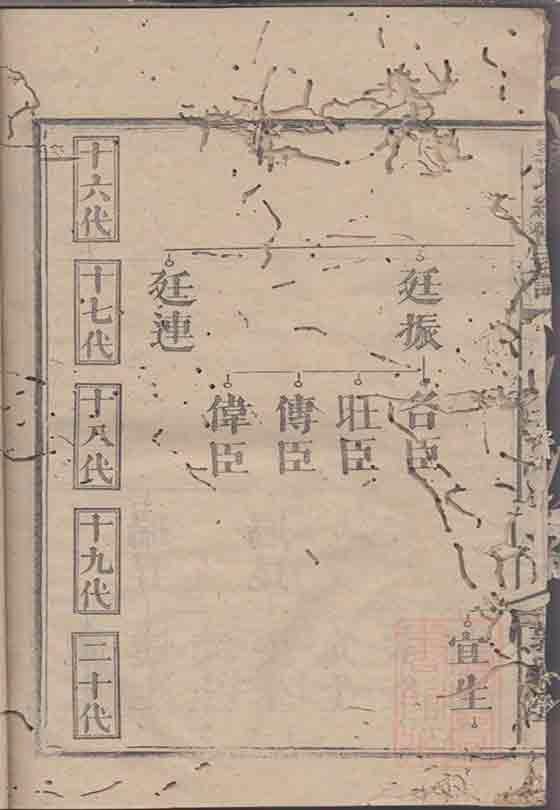 十六代
十七代
十八代
十九代
二十代
廷振
廷連
名臣
旺臣
傳臣
偉臣
宜生